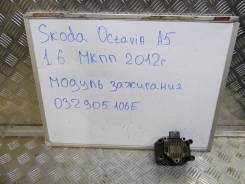 Skoda Octavia A5
1.6 МКПП 2012г
Модуль зажигания
032905106E